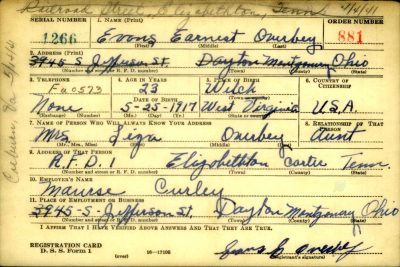 Railroad Street, Elizabethton, Tenn
SERIAL NUMBER 1. NAME (Print) ORDER NUMBER
1266 Evons Earnest Overbey 881
(First) (Middle) (Last)
2. ADDRESS (Print)
3945 S Jefferson St. Dayton Montgomery Ohio
(Number and street or R. F. D. number) (Town) (County) (State)
3. TELEPHONE 4. AGE IN YEARS 5. PLACE OF BIRTH 6. COUNTRY OF CITIZENSHIP
23 Welch
DATE OF BIRTH
None 5-25-1917 West Virginia U.S.A.
(Exchange) (Number) (Mo.) (Day) (Yr.) (State or country)
7. NAME OF PERSON WHO WILL ALWAYS KNOW YOUR ADDRESS 8. RELATIONSHIP OF THAT PERSON
Mrs Liza Overbey Aunt
(Mr., Mrs., Miss) (First) (Middle) (Last)
9. ADDRESS OF THAT PERSON
R.F.D. 1 Elizabethton Carter Tenn.
(Number and street or R. F. D. number) (Town) (County) (State)
10. EMPLOYER'S NAME
Curley
11. PLACE OF EMPLOYMENT OR BUSINESS
3945-S-Jefferson St. Dayton Montgomery Ohio
(Number and street or R. F. D. number) (Town) (County) (State)
I AFFIRM THAT I HAVE VERIFIED ABOVE ANSWERS AND THAT THEY ARE TRUE.
REGISTRATION CARD
D. S. S. Form 1 (over) 16—17105
Evans E Overbey
(Registrant's signature)